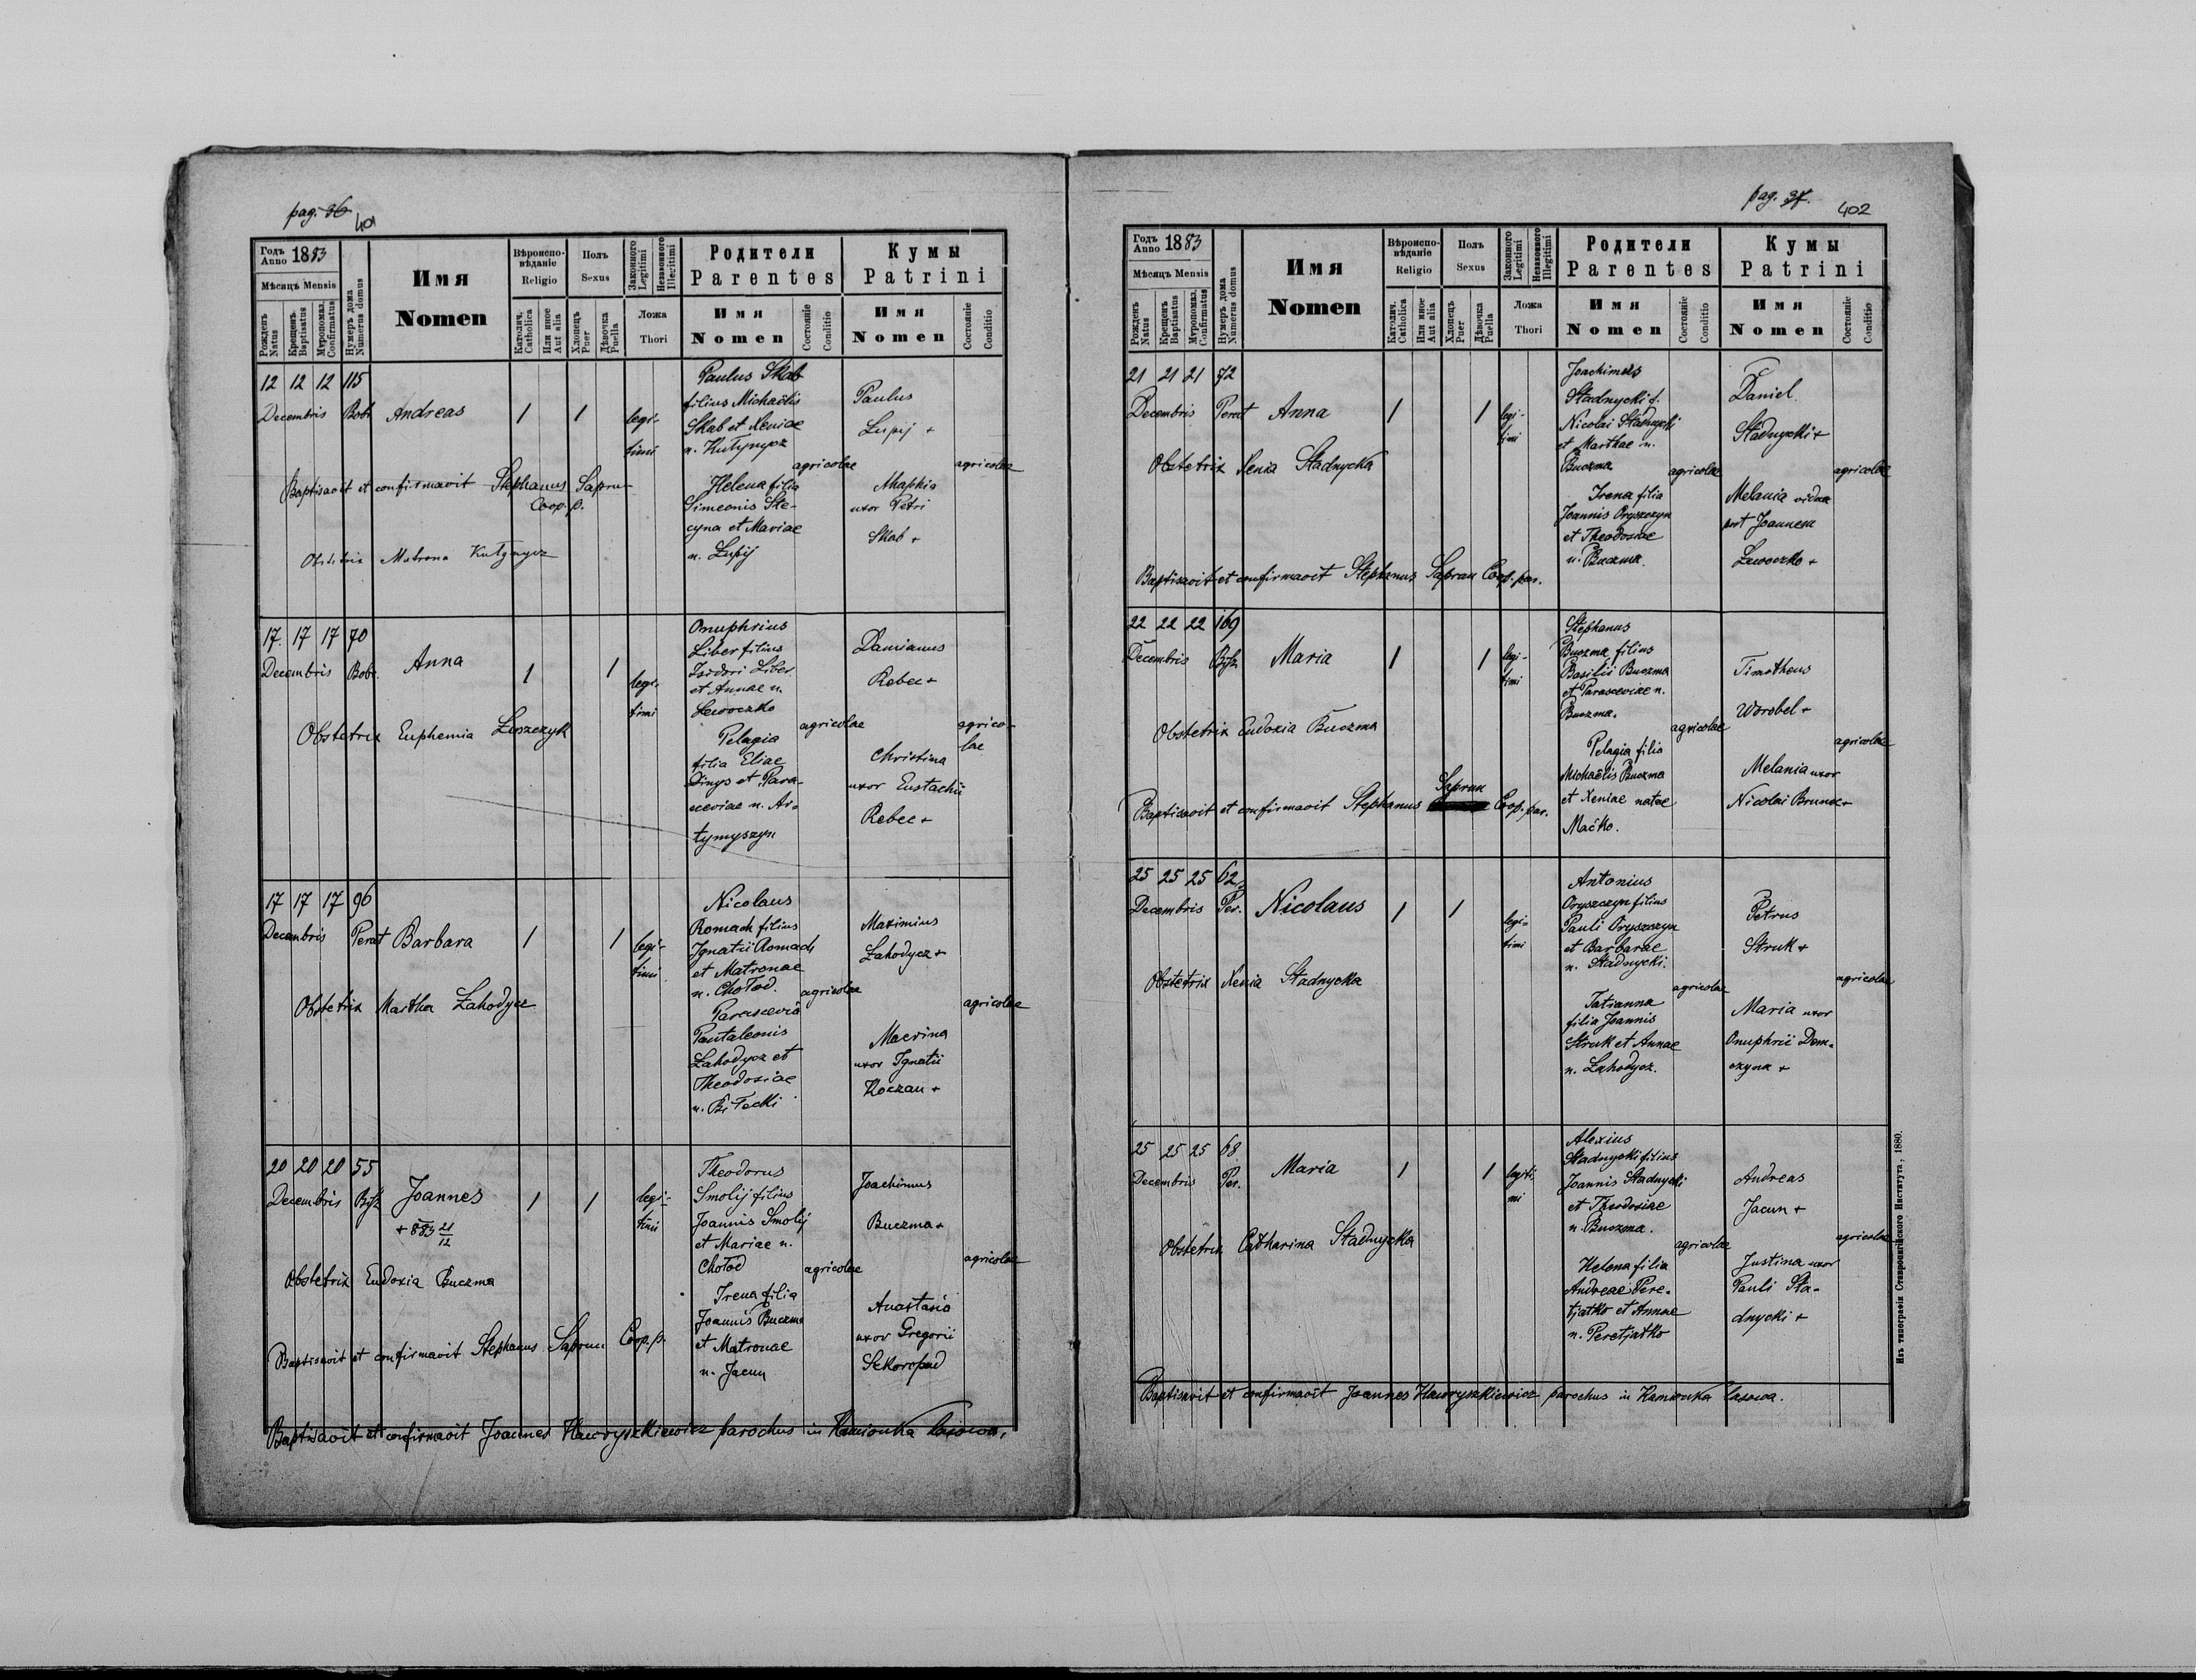 pag. 36
401
Годъ Anno 1883
Мѣсяцъ Mensis
Рожденъ Natus
Крещенъ Baptisatus
Муропомаз. Confirmatus
Нумеръ дома Numerus domus
Имя
Nomen
Вѣроиспо-
вѣданіе
Religio
Католич. Catholica
Или иное Aut alia
Полъ
Sexus
Хлопецъ Puer
Дѣвочка Puella
Законного Legitimi
Незаконного Illegitimi
Ложа
Thori
Родители
Parentes
Имя
Nomen
Состояніе Conditio
Кумы
Patrini
Имя
Nomen
Состояніе Conditio
12 12 12 115
Decembris Bobr. Andreas 1 1 legi-
timi
Paulus Skab
filius Michaëlis
Skab et Xeniae
n. Kułynycz
agricolae
Helena filia
Simeonis Ste-
cyna et Mariae
n. Łupij
Paulus
Łupij +
Ahaphia
uxor Petri
Skab +
agricolae
Baptisavit et confirmavit Stephanus Saprun
Coop. p.
Obstetrix Matrona Kułynycz
17 17 17 70
Decembris Bobr. Anna 1 1 legi-
timi
Onuphrius
Liber filius
Isidori Liber
et Annae n.
Lewoczko
agricolae
Pelagia
filia Eliae
Dinys et Para-
sceviae n. Ar-
tymyszyn
Damianus
Rebec +
Christina
uxor Eustachii
Rebec +
agrico-
lae
Obstetrix Euphemia Leszczyk
17 17 17 96
Decembris Perat Barbara 1 1 legi-
timi
Nicolaus
Romach filius
Ignatii Romach
et Matronae
n. Chołod.
agricolae
Parascevia
Pantaleonis
Zahodycz et
Theodosiae
n. Biłecki
Maximius
Zahodycz +
Macrina
uxor Ignatii
Koczan +
agricolae
Obstetrix Martha Zahodycz
20 20 20 55
Decembris Bysz. Joannes 1 1 legi-
timi
+ 883 21/12
Theodorus
Smolij filius
Joannis Smolij
et Mariae n.
Chołod
agricolae
Irena filia
Joannis Buczma
et Matronae
n. Jacun
Joachimus
Buczma +
Anastasia
uxor Gregorii
Skoropad
agricolae
Obstetrix Eudoxia Buczma
Baptisavit et confirmavit Stephanus Saprun Coop. p.
Baptisavit et confirmavit Joannes Hawryszkiewicz parochus in Kamionka lasowa.
pag. 37.
402
Годъ Anno 1883
Мѣсяцъ Mensis
Рожденъ Natus
Крещенъ Baptisatus
Муропомаз. Confirmatus
Нумеръ дома Numerus domus
Имя
Nomen
Вѣроиспо-
вѣданіе
Religio
Католич. Catholica
Или иное Aut alia
Полъ
Sexus
Хлопецъ Puer
Дѣвочка Puella
Законного Legitimi
Незаконного Illegitimi
Ложа
Thori
Родители
Parentes
Имя
Nomen
Состояніе Conditio
Кумы
Patrini
Имя
Nomen
Состояніе Conditio
21 21 21 72
Decembris Perat Anna 1 1 legi-
timi
Joachimus
Stadnycki f.
Nicolai Stadnycki
et Marthae n.
Buczma
agricolae
Irena filia
Joannis Oryszczyn
et Theodosiae
n. Buczma.
Daniel
Stadnycki +
Melania vidua
post Joannem
Lewoczko +
agricolae
Obstetrix Xenia Stadnycka
Baptisavit et confirmavit Stephanus Saprun Coop. par.
22 22 22 169
Decembris Bysz. Maria 1 1 legi-
timi
Stephanus
Buczma filius
Basilii Buczma
et Parasceviae n.
Buczma.
agricolae
Pelagia filia
Michaëlis Buczma
et Xeniae natae
Maćko.
Timotheus
Worobel +
Melania uxor
Nicolai Brunec +
agricolae
Obstetrix Eudoxia Buczma
Baptisavit et confirmavit Stephanus Saprun Coop. par.
25 25 25 62
Decembris Per. Nicolaus 1 1 legi-
timi
Antonius
Oryszczyn filius
Pauli Oryszczyn
et Barbarae
n. Stadnycki.
agricolae
Tatianna
filia Joannis
Struk et Annae
n. Zahodycz.
Petrus
Struk +
Maria uxor
Onuphrii Dem-
czyna +
agricolae
Obstetrix Xenia Stadnycka
25 25 25 68
Decembris Per. Maria 1 1 legiti-
mi
Alexius
Stadnycki filius
Joannis Stadnycki
et Theodosiae
n. Buczma.
agricolae
Helena filia
Andreae Pere-
tjatko et Annae
n. Peretjatko
Andreas
Jacun +
Justina uxor
Pauli Sta-
dnycki +
agricolae
Obstetrix Catharina Stadnycka
Baptisavit et confirmavit Joannes Hawryszkiewicz parochus in Kamionka lasowa.
Изъ типографіи Ставропигійского Института, 1880.